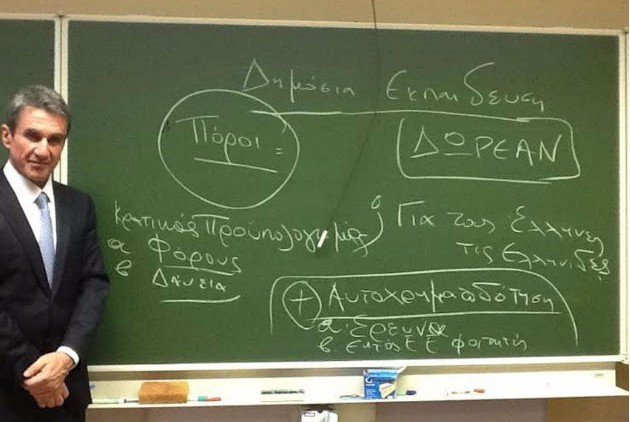 Δημόσια Εκπαίδευση
Πόροι =
ΔΩΡΕΑΝ
Κρατικός Προϋπολογισμός
α Φόρους
β Δάνεια
Για τους Έλληνες
τις Ελληνίδες
+ Αυτοχρηματοδότηση
α. Έρευνα
β. Εκτός Ε Ε φοιτητή